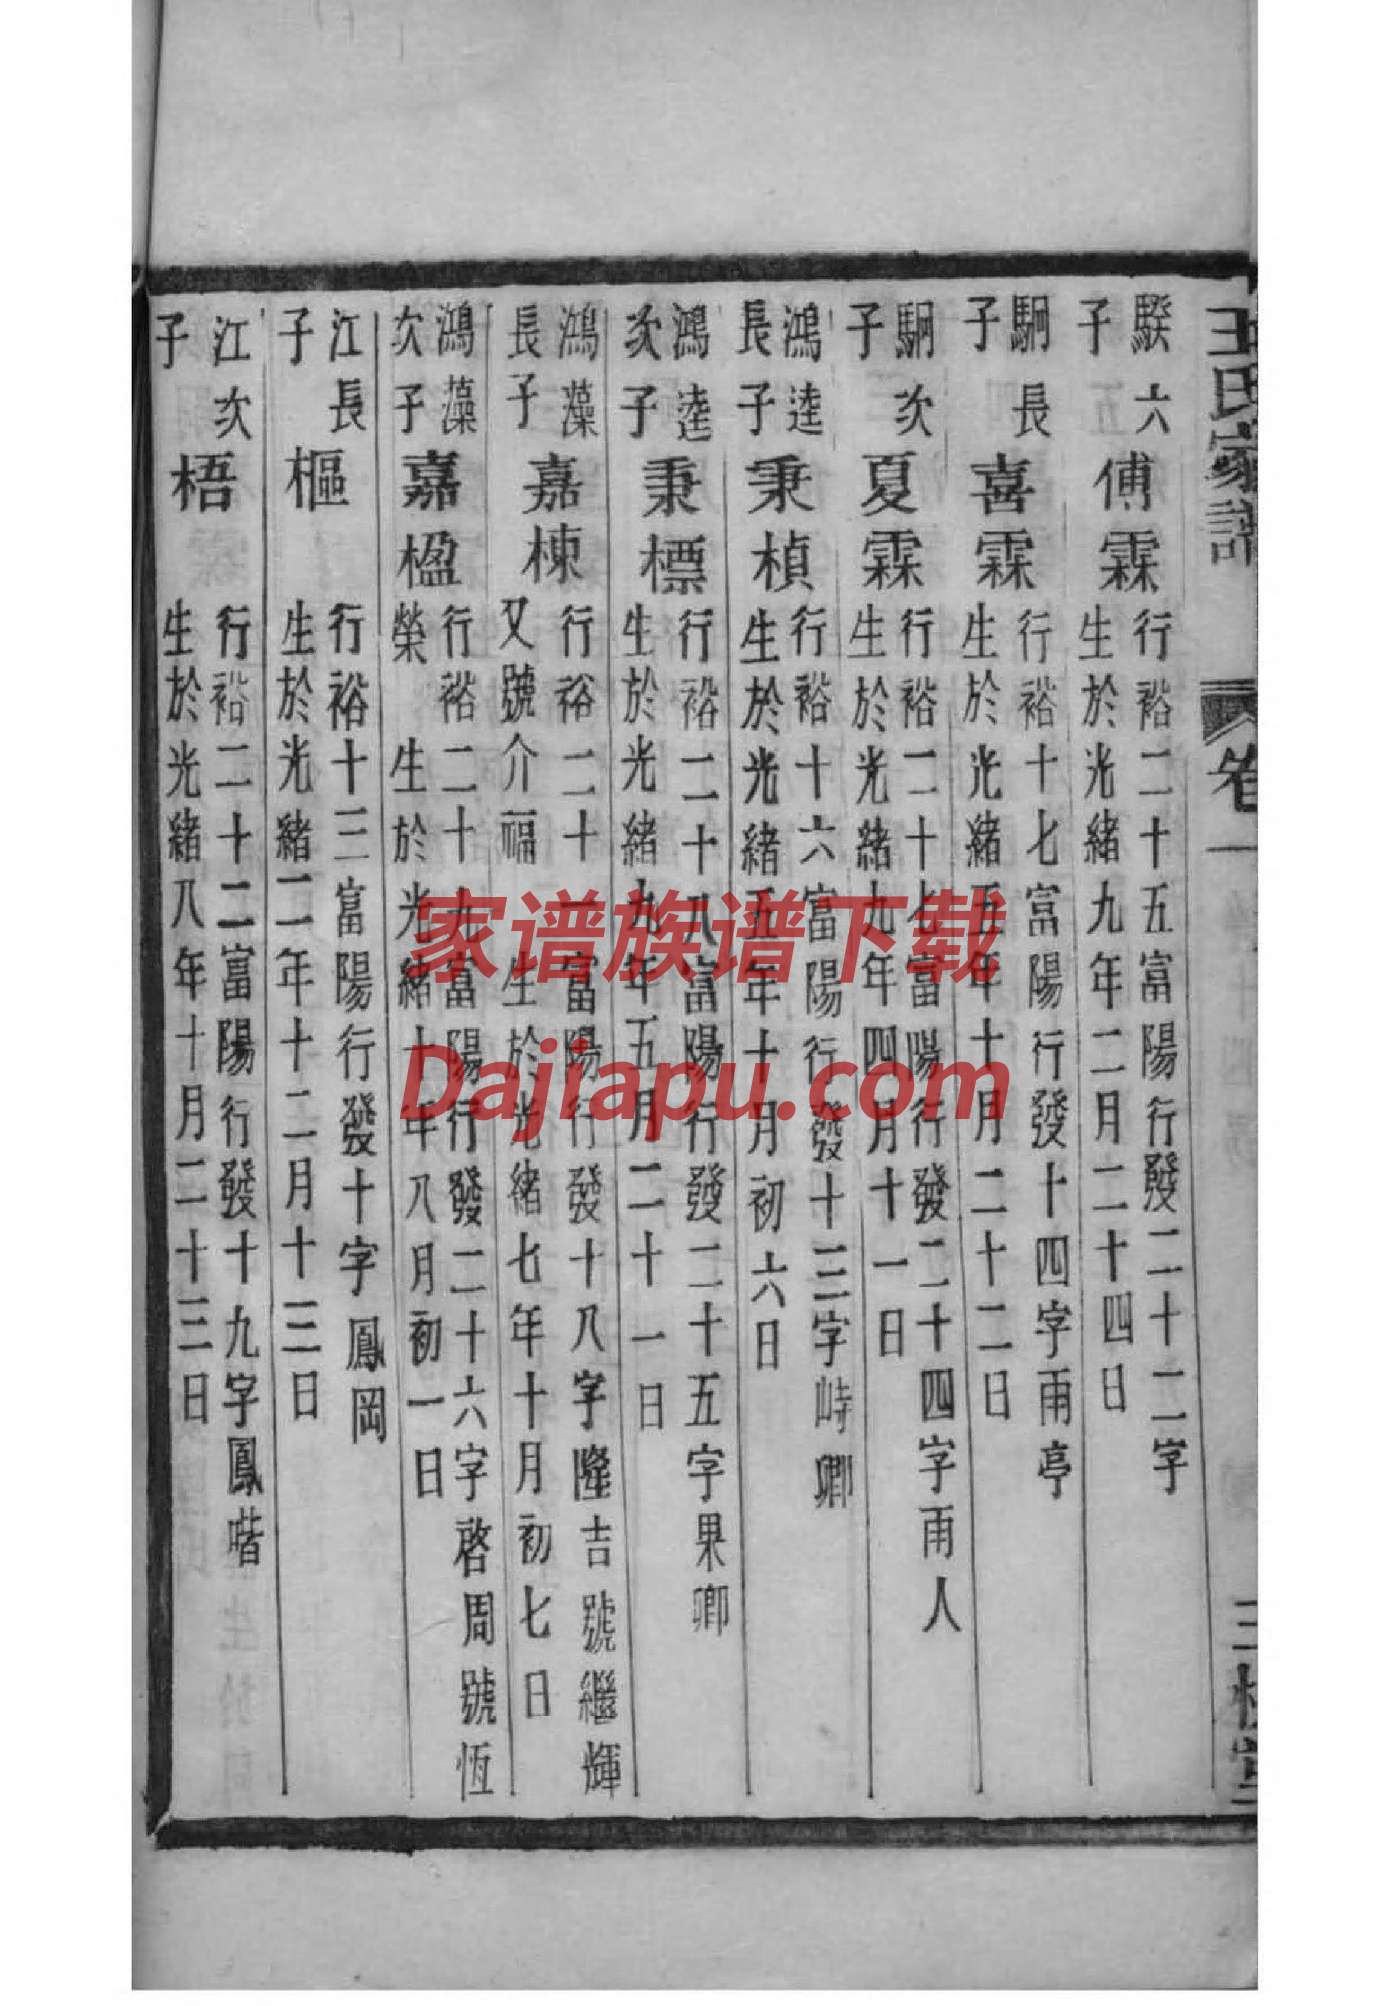 王氏家譜
卷一
三槐堂
騤六子
傅霖
行裕二十五富陽行發二十二字
生於光緒九年二月二十四日
駉長子
喜霖
行裕十七富陽行發十四字雨亭
生於光緒五年十月二十二日
駉次子
夏霖
行裕二十七富陽行發二十四字雨人
生於光緒九年四月十一日
鴻逵長子
秉楨
行裕十六富陽行發十三字峙卿
生於光緒五年十月初六日
鴻逵次子
秉標
行裕二十八富陽行發二十五字果卿
生於光緒九年五月二十一日
鴻藻長子
嘉棟
行裕二十一富陽行發十八字隆吉號繼輝
又號介福生於光緒七年十月初七日
鴻藻次子
嘉楹
行裕二十九富陽行發二十六字啓周號恆
榮生於光緒十年八月初一日
江長子
樞
行裕十三富陽行發十字鳳岡
生於光緒二年十二月十三日
江次子
梧
行裕二十二富陽行發十九字鳳喈
生於光緒八年十月二十三日
家谱族谱下载
Dajiapu.com